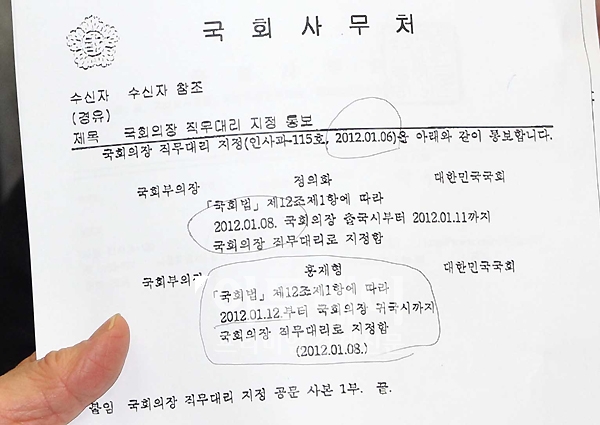 국 회 사 무 처
수신자 수신자 참조
(경유)
제목 국회의장 직무대리 지정 통보
국회의장 직무대리 지정(인사과-115호, 2012.01.06)을 아래와 같이 통보합니다.
국회부의장 정의화 대한민국국회
「국회법」제12조제1항에 따라
2012.01.08. 국회의장 출국시부터 2012.01.11까지
국회의장 직무대리로 지정함
국회부의장 홍재형 대한민국국회
「국회법」제12조제1항에 따라
2012.01.12.부터 국회의장 귀국시까지
국회의장 직무대리로 지정함
(2012.01.08.)
붙임 국회의장 직무대리 지정 공문 사본 1부. 끝.